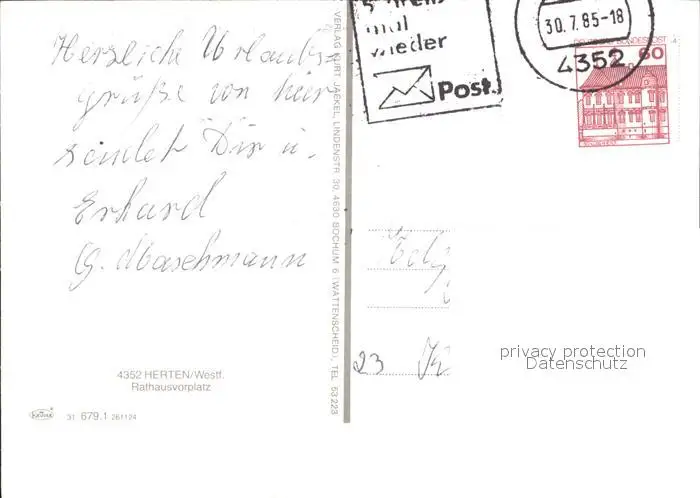 Herzliche Urlaubs=
grüße von hier
sendet Dir u.
Erhard
G. Maschmann
4352 HERTEN/Westf.
Rathausvorplatz
31 679.1 261124
VERLAG KURT JAEKEL, LINDENSTR. 30, 4630 BOCHUM 6 (WATTENSCHEID), TEL. 53 223
mal
wieder
Post.
30.7.85-18
4352
DEUTSCHE BUNDESPOST
60
23
privacy protection
Datenschutz